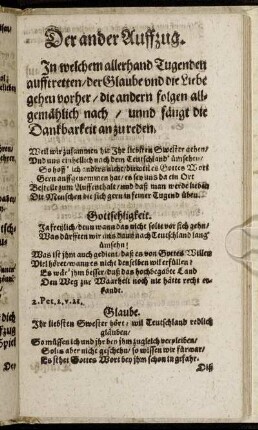 Der ander Auffzug.
In welchem allerhand Tugenden
aufftretten/ der Glaube vnd die Liebe
gehen vorher/ die andern folgen all-
gemählich nach/ vnnd fängt die
Danckbarkeit an zu reden.
Weil wir zusammen hie Ihr liebsten Swester gehen/
Vnd uns einhellich nach dem Teutschland' ümsehen/
So hoff' ich anders nicht/ dieweil es Gottes Wort
Gern auffgenommen hat/ es sey uns da ein Ort
Bestelt zum Auffenthalt/ und daß man werde lieben
Die Menschen die sich gern in seiner Tugend üben.
Gottsehligkeit.
Ja freylich/ denn wann das nicht solte vor sich gehn/
Was dürfften wir uns dann nach Teutschland lang'
ümsehn!
Was ist ihm auch gedient/ daß es von Gottes Willen
Viel höret/ wann es nicht denselben wil erfüllen?
Es wär' ihm besser/ daß das hochbegabte Land
Den Weg zur Waarheit noch nie hätte recht er-
kandt.
2. Pet. 2, v. 21.
Glaube.
Ihr liebsten Swester hört/ wil Teutschland redlich
gläuben/
So müssen ich und ihr bey ihm zugleich verbleiben/
Sol es aber nicht geschehn/ so wissen wir fürwar/
Es steht Gottes Wort bey ihm schon in gefahr.
Diß